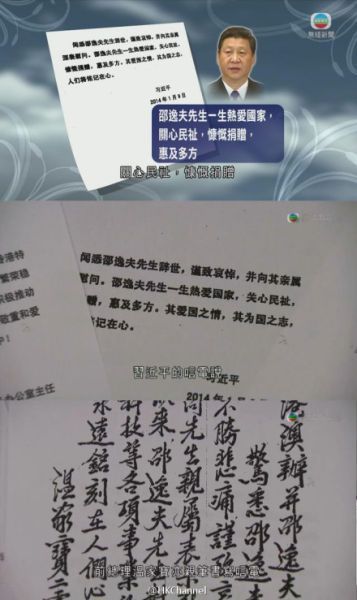 無綫新聞
闻悉邵逸夫先生辞世,谨致哀悼,并向其亲属
慰问。邵逸夫先生一生热爱国家,关心民祉,
慷慨捐赠,惠及多方,其爱国之情,其为国之志,
人们将铭记在心。
习近平
2014年1月9日
邵逸夫先生一生熱愛國家,
關心民祉,慷慨捐贈,
惠及多方
關心民祉,慷慨捐贈
香港特
繁荣稳
积极推动
敬重和爱
办公室主任
闻悉邵逸夫先生辞世,谨致哀悼,并向其亲属
慰问。邵逸夫先生一生热爱国家,关心民祉,
赠,惠及多方,其爱国之情,其为国之志,
记在心。
习近平
2014年
習近平的唁電說
港澳辦并邵逸夫
驚悉邵逸
不勝悲痛謹致
向先生親屬表
以來邵逸夫先
科技等各項事業
永遠銘刻在人們心
溫家寶
前總理溫家寶亦親筆書寫唁電
@HKChannel